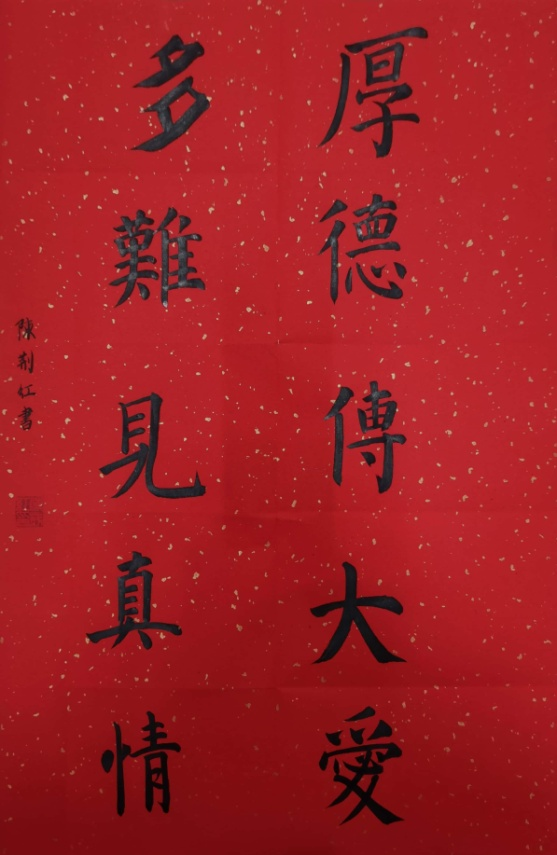 厚德傳大愛
多難見真情
陳荆红書